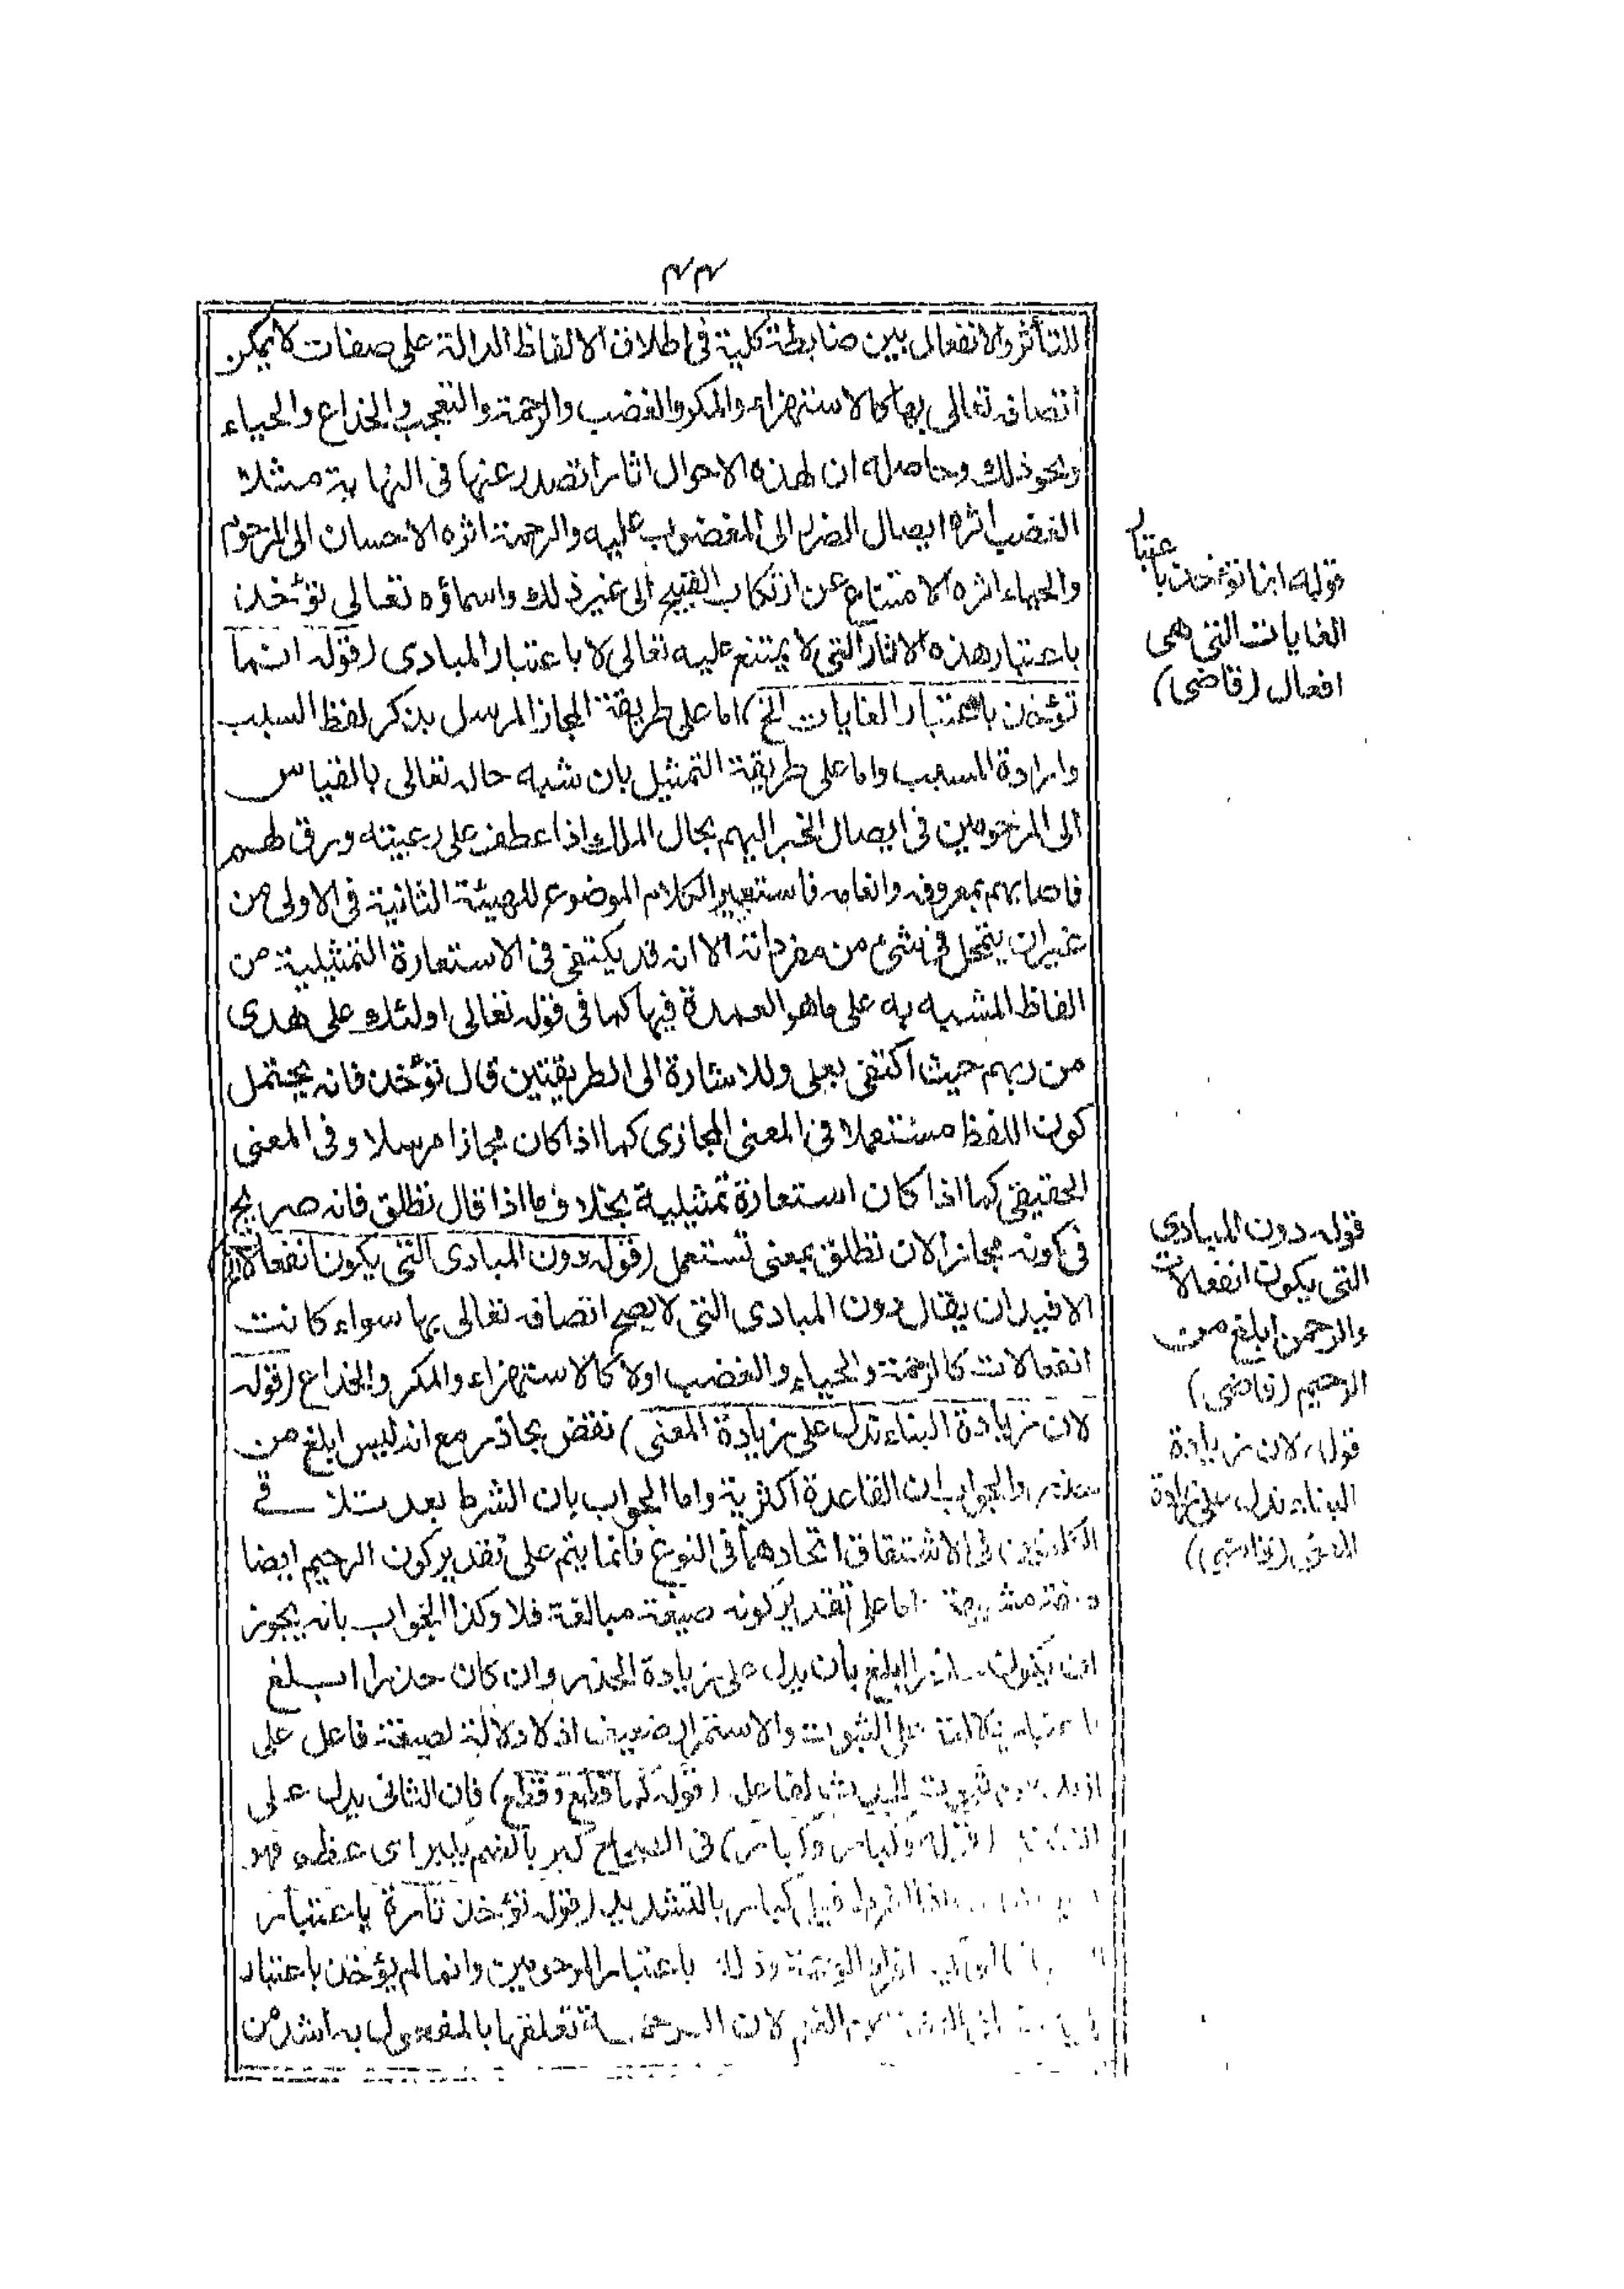 ٤٤
للتأثر والانفعال بين ضابطة كلية فى اطلاق الالفاظ الدالة على صفات لا يمكن
اتصافه تعالى بها كالاستهزاء والمكر والغضب والرحمة والتعجب والخداع والحياء
ونحو ذلك وحاصله ان لهذه الاحوال اثارا تصدر عنها فى النهاية مثلا
الغضب اثره ايصال الضرر الى المغضوب عليه والرحمة اثره الاحسان الى المرحوم
والحياء اثره الامتناع عن ارتكاب القبيح الى غير ذلك واسماؤه تعالى تؤخذ
باعتبار هذه الاثار التى لا يمتنع عليه تعالى لا باعتبار المبادى (قوله انما
تؤخذ باعتبار الغايات الخ) اما على طريقة المجاز المرسل بذكر لفظ السبب
وارادة المسبب واما على طريقة التمثيل بان شبه حاله تعالى بالقياس
الى المرحومين فى ايصال الخير اليهم بحال الملك اذا عطف على رعيته ورق لهم
فاصابهم بمعروفه وانعامه فاستعير الكلام الموضوع للهيئة الثانية فى الاولى من
غير ان يتمحل فى شئ من مفرداته الا انه قد يكتفى فى الاستعارة التمثيلية من
الفاظ المشبه به على ما هو العمدة فيها كما فى قوله تعالى اولئك على هدى
من ربهم حيث اكتفى بعلى وللاشارة الى الطريقتين قال تؤخذ فانه يحتمل
كون اللفظ مستعملا فى المعنى المجازى كما اذا كان مجازا مرسلا وفى المعنى
الحقيقى كما اذا كان استعارة تمثيلية بخلاف ما اذا قال تطلق فانه صريح
فى كونه مجازا لان تطلق بمعنى تستعمل (قوله دون المبادى التى يكون انفعالات الخ)
الافيد ان يقال دون المبادى التى لا يصح اتصافه تعالى بها سواء كانت
انفعالات كالرحمة والحياء والغضب اولا كالاستهزاء والمكر والخداع (قوله
لان زيادة البناء تدل على زيادة المعنى) نقض بحاذر مع انه ليس ابلغ من
حذر والجواب ان القاعدة اكثرية واما الجواب بان الشرط بعد تلاقى
الكلمتين فى الاشتقاق اتحادهما فى النوع فانما يتم على تقدير كون الرحيم ايضا
صفة مشبهة اما على تقدير كونه صيغة مبالغة فلا وكذا الجواب بانه يجوز
ان يكون حاذر ابلغ بان يدل على زيادة الحذر وان كان حذرا ابلغ
باعتبار دلالته على الثبوت والاستمرار ضعيف اذ لا دلالة لصيغة فاعل على
(قوله كما قطع وقطع) فان الثانى يدل على
(قوله وكبار وكبار) فى الصحاح كبر بالضم يكبر اى عظم فهو
كبار بالتشديد (قوله تؤخذ تارة باعتبار
باعتبار المرحومين وانما لم يؤخذ باعتبار
لان الرحمة تعلقها بالمفعول به اشد من
قوله انما تؤخذ باعتبار
الغايات التى هى
افعال (قاضى)
قوله دون المبادى
التى يكون انفعالات
والرحمن ابلغ من
الرحيم (قاضى)
قوله لان زيادة
البناء تدل على زيادة
المعنى (قاضى)